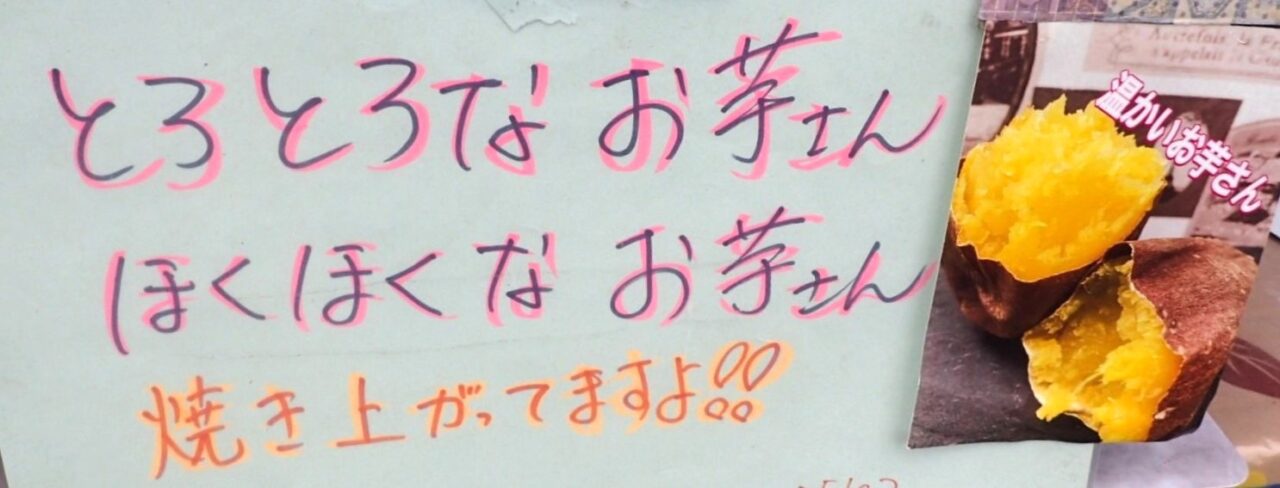 とろとろな お芋さん
ほくほくな お芋さん
焼き上がってますよ!!
温かいお芋さん